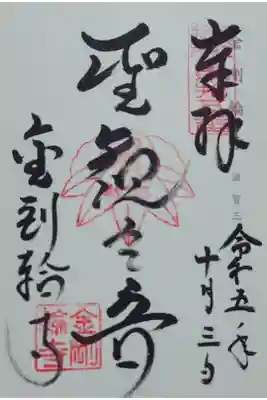 奉拝
令和五年
十月三日
聖観世音
金剛輪寺
金剛
輪寺